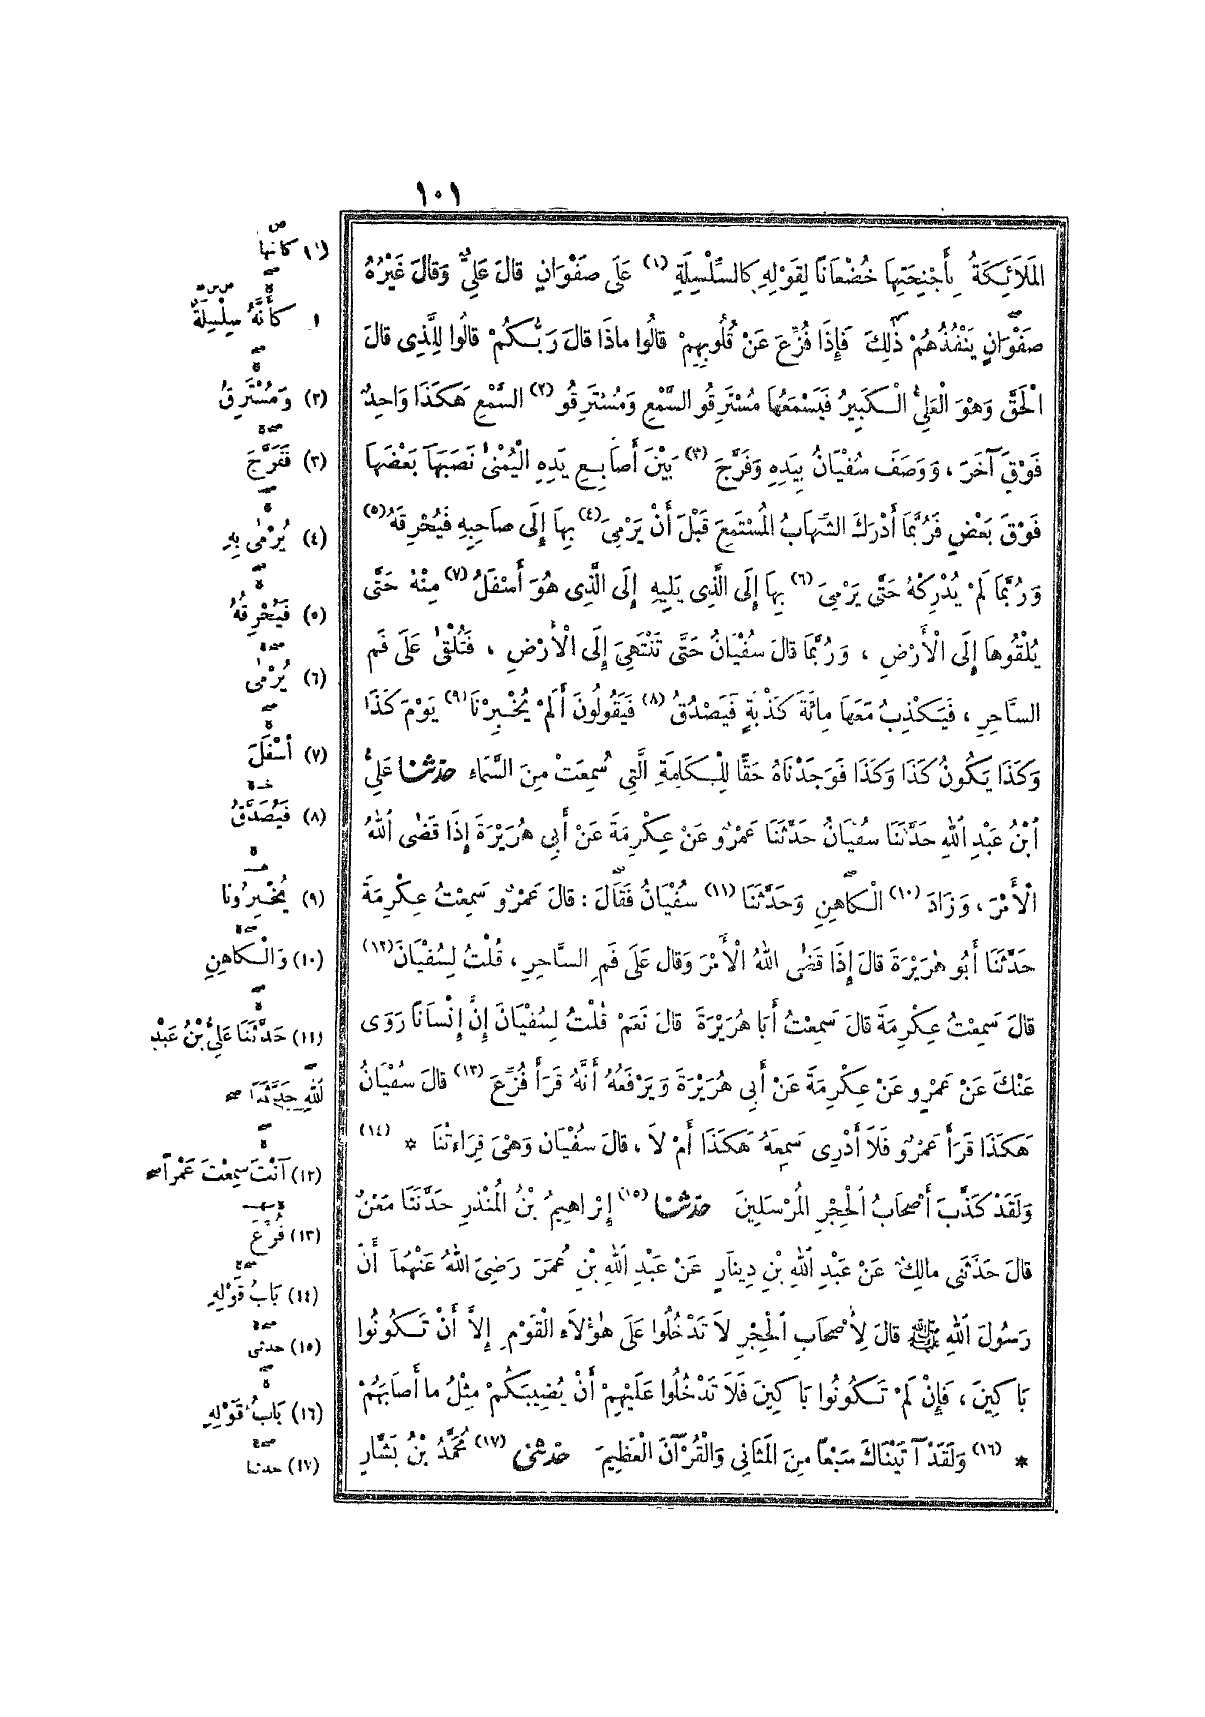 ١٠١
المَلَائِكَةُ بِأَجْنِحَتِهَا خُضْعَانًا لِقَوْلِهِ كَالسِّلْسِلَةِ (١) عَلَى صَفْوَانٍ قالَ عَلِيٌّ وَقالَ غَيْرُهُ
صَفْوَانٍ يَنْفُذُهُمْ ذٰلِكَ فَإِذَا فُزِّعَ عَنْ قُلُوبِهِمْ قالُوا ماذَا قالَ رَبُّكُمْ قالُوا لِلَّذِى قالَ
الْحَقَّ وَهْوَ الْعَلِيُّ الْكَبِيرُ فَيَسْمَعُهَا مُسْتَرِقُو السَّمْعِ وَمُسْتَرِقُو (٢) السَّمْعِ هَكَذَا وَاحِدٌ
فَوْقَ آخَرَ ، وَوَصَفَ سُفْيَانُ بِيَدِهِ وَفَرَّجَ (٣) بَيْنَ أَصَابِعِ يَدِهِ الْيُمْنٰى نَصَبَهَا بَعْضَهَا
فَوْقَ بَعْضٍ فَرُبَّمَا أَدْرَكَ الشِّهَابُ المُسْتَمِعَ قَبْلَ أَنْ يَرْمِىَ (٤) بِهَا إِلَى صَاحِبِهِ فَيُحْرِقَهُ (٥)
وَرُبَّمَا لَمْ يُدْرِكْهُ حَتَّى يَرْمِىَ (٦) بِهَا إِلَى الَّذِى يَلِيهِ إِلَى الَّذِى هُوَ أَسْفَلُ (٧) مِنْهُ حَتَّى
يُلْقُوهَا إِلَى الْأَرْضِ ، وَرُبَّمَا قالَ سُفْيَانُ حَتَّى تَنْتَهِىَ إِلَى الْأَرْضِ ، فَتُلْقٰى عَلَى فَمِ
السَّاحِرِ ، فَيَكْذِبُ مَعَهَا مِائَةَ كَذْبَةٍ فَيَصْدُقُ (٨) فَيَقُولُونَ أَلَمْ يُخْبِرْنَا (٩) يَوْمَ كَذَا
وَكَذَا يَكُونُ كَذَا وَكَذَا فَوَجَدْنَاهُ حَقًّا لِلْكَلِمَةِ الَّتِي سُمِعَتْ مِنَ السَّمَاءِ حَدَّثَنَا عَلِيُّ
ابْنُ عَبْدِ اللهِ حَدَّثَنَا سُفْيَانُ حَدَّثَنَا عَمْرٌو عَنْ عِكْرِمَةَ عَنْ أَبِي هُرَيْرَةَ إِذَا قَضٰى اللهُ
الْأَمْرَ ، وَزَادَ (١٠) الْكَاهِنِ وَحَدَّثَنَا (١١) سُفْيَانُ فَقَالَ : قالَ عَمْرٌو سَمِعْتُ عِكْرِمَةَ
حَدَّثَنَا أَبُو هُرَيْرَةَ قالَ إِذَا قَضٰى اللهُ الْأَمْرَ وَقالَ عَلَى فَمِ السَّاحِرِ ، قُلْتُ لِسُفْيَانَ (١٢)
قالَ سَمِعْتُ عِكْرِمَةَ قالَ سَمِعْتُ أَبَا هُرَيْرَةَ قالَ نَعَمْ قُلْتُ لِسُفْيَانَ إِنَّ إِنْسَانًا رَوَى
عَنْكَ عَنْ عَمْرٍو عَنْ عِكْرِمَةَ عَنْ أَبِي هُرَيْرَةَ وَيَرْفَعُهُ أَنَّهُ قَرَأَ فُزِّعَ (١٣) قالَ سُفْيَانُ
هَكَذَا قَرَأَ عَمْرٌو فَلَا أَدْرِى سَمِعَهُ هَكَذَا أَمْ لَا ، قالَ سُفْيَان وَهْىَ قِرَاءَتُنَا * (١٤)
وَلَقَدْ كَذَّبَ أَصْحَابُ الْحِجْرِ المُرْسَلِينَ حَدَّثَنَا (١٥) إِبْرَاهِيمُ بْنُ المُنْذِرِ حَدَّثَنَا مَعْنٌ
قالَ حَدَّثَنِي مالِكٌ عَنْ عَبْدِ اللهِ بْنِ دِينَارٍ عَنْ عَبْدِ اللهِ بْنِ عُمَرَ رَضِىَ اللهُ عَنْهُمَا أَنَّ
رَسُولَ اللهِ ﷺ قالَ لِأَصْحَابِ الْحِجْرِ لَا تَدْخُلُوا عَلَى هٰؤُلَاءِ الْقَوْمِ إِلَّا أَنْ تَكُونُوا
بَاكِينَ ، فَإِنْ لَمْ تَكُونُوا بَاكِينَ فَلَا تَدْخُلُوا عَلَيْهِمْ أَنْ يُصِيبَكُمْ مِثْلُ ما أَصَابَهُمْ
* (١٦) وَلَقَدْ آتَيْنَاكَ سَبْعًا مِنَ المَثَانِي وَالْقُرْآنَ الْعَظِيمَ حَدَّثَنِي (١٧) مُحَمَّدُ بْنُ بَشَّارٍ
(١) كَأَنَّهَا
١ كَأَنَّهُ سِلْسِلَةٌ
(٢) وَمُسْتَرِقُ
(٣) فَفَرَّجَ
(٤) يُرْمٰى بِهِ
(٥) فَيُحْرِقُهُ
(٦) يُرْمٰى
(٧) أَسْفَلَ
(٨) فَيُصَدَّقُ
(٩) يُخْبِرُونَا
(١٠) وَالْكَاهِنِ
(١١) حَدَّثَنَا عَلِيُّ بْنُ عَبْدِ
اللهِ حَدَّثَنَا
(١٢) آنْتَ سَمِعْتَ عَمْرًا
(١٣) فُزِّعَ
(١٤) بَابُ قَوْلِهِ
(١٥) حدثني
(١٦) بَابُ قَوْلِهِ
(١٧) حدثنا